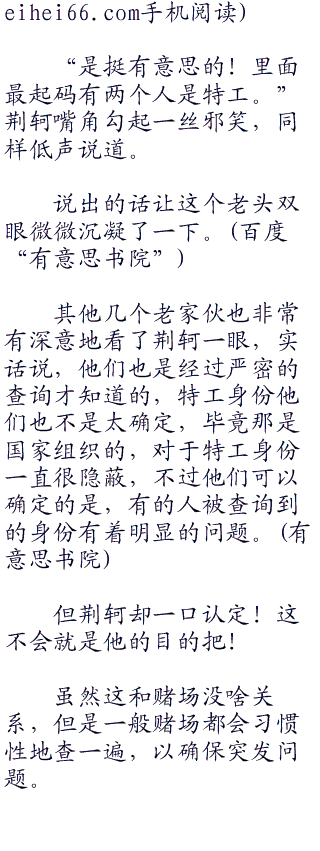 eihei66.com手机阅读)
“是挺有意思的!里面
最起码有两个人是特工。”
荆轲嘴角勾起一丝邪笑，同
样低声说道。
说出的话让这个老头双
眼微微沉凝了一下。(百度
“有意思书院”)
其他几个老家伙也非常
有深意地看了荆轲一眼，实
话说，他们也是经过严密的
查询才知道的，特工身份他
们也不是太确定，毕竟那是
国家组织的，对于特工身份
一直很隐蔽，不过他们可以
确定的是，有的人被查询到
的身份有着明显的问题。(有
意思书院)
但荆轲却一口认定!这
不会就是他的目的把!
虽然这和赌场没啥关
系，但是一般赌场都会习惯
性地查一遍，以确保突发问
题。